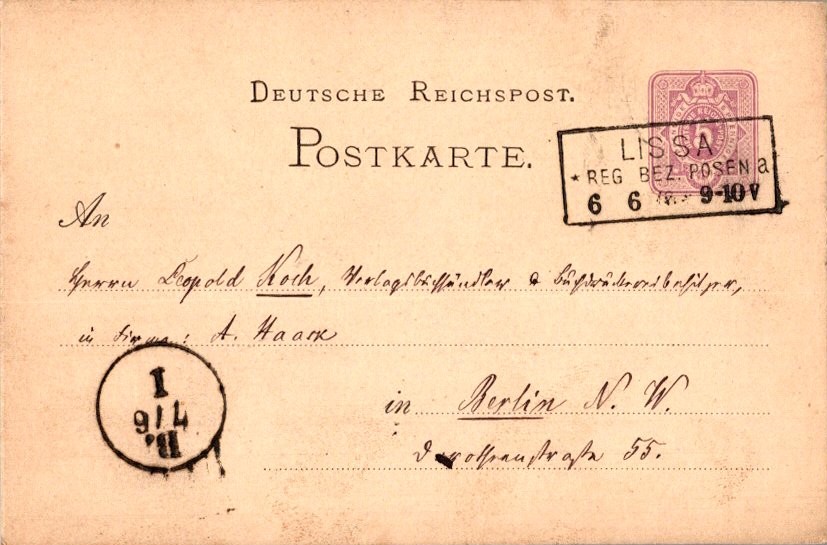 DEUTSCHE REICHSPOST.
POSTKARTE.
5
LISSA
* REG BEZ. POSEN a
6 6 9-10 V
An
Herrn Leopold Koch, Verlagsbuchhändler & Buchdruckereibesitzer,
in Firma: A. Haack
in Berlin N. W.
Dorotheenstraße 55.
I
7/6
B.